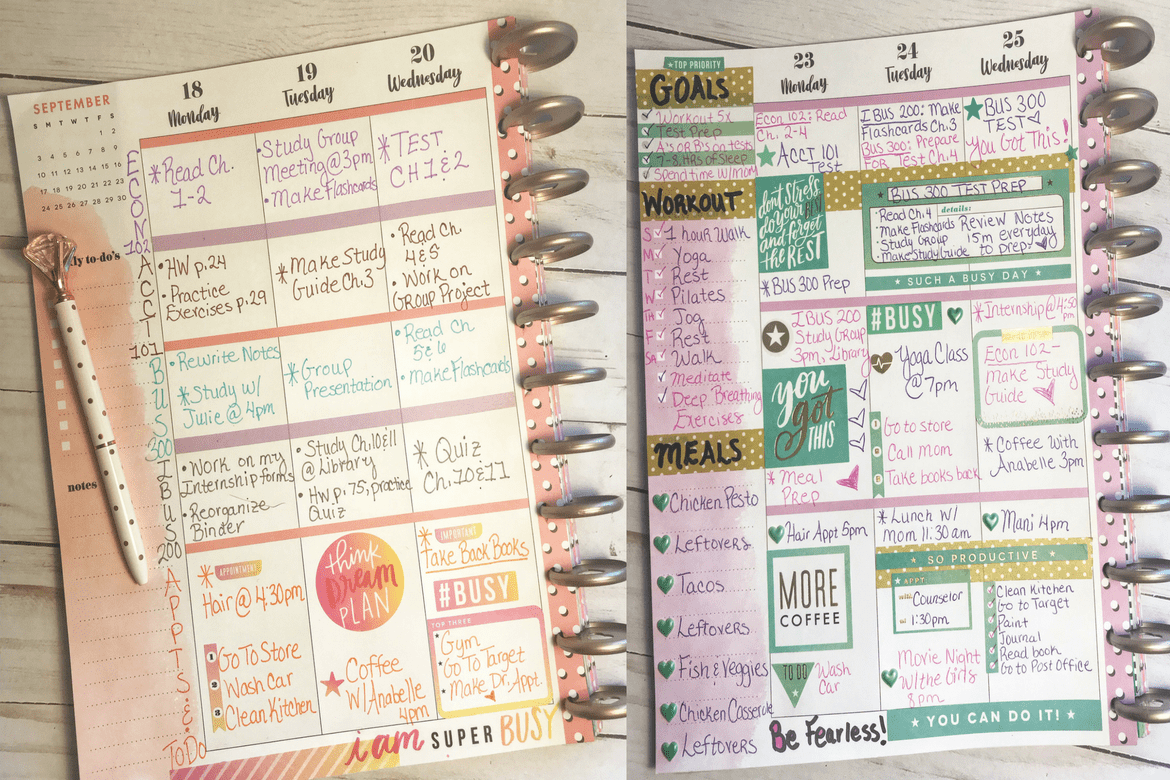 SEPTEMBER
S M T W T F S
1 2
3 4 5 6 7 8 9
10 11 12 13 14 15 16
17 18 19 20 21 22 23
24 25 26 27 28 29 30
18
Monday
19
Tuesday
20
Wednesday
ECON
102
*Read Ch.
1-2
•Study Group
Meeting @3pm
•Make Flashcards
*TEST
CH 1 & 2
ACCT
101
•HW p.24
•Practice
Exercises p.29
*Make Study
Guide Ch.3
•Read Ch.
4 & 5
•Work on
GROUP Project
BUS
300
•Rewrite Notes
*Study w/
Julie @ 4pm
*Group
Presentation
•Read Ch
5 & 6
•Make Flashcards
IBUS
200
•Work on my
Internship forms
•Reorganize
Binder
•Study Ch.10&11
@ Library
•HW p. 75, practice
Quiz
*Quiz
Ch. 10 & 11
APPTS &
To Do
*APPOINTMENT
Hair @ 4:30pm
1 Go To Store
2 Wash Car
3 Clean Kitchen
think
DREAM
PLAN
Coffee
W/ Anabelle
4pm
*IMPORTANT
Take Back Books
#BUSY
TOP THREE
Gym
Go To Target
Make Dr. Appt.
ly to-do's
notes
i am SUPER BUSY
TOP PRIORITY
GOALS
Workout 5x
Test Prep
A's or B's on tests
7-8 HRS of Sleep
Spend time w/mom
WORKOUT
S 1 hour Walk
M Yoga
T Rest
W Pilates
TH Jog
F Rest
SA Walk
Meditate
Deep Breathing
Exercises
MEALS
Chicken Pesto
Leftovers
Tacos
Leftovers
Fish & Veggies
Chicken Casserole
Leftovers
23
Monday
Econ 102: Read
Ch. 2-4
ACCT 101
Test
don't stress.
do your BEST
and forget
the REST
*BUS 300 Prep
IBUS 200
Study Group
3pm, Library
you
got
THIS
*Meal
Prep
Hair Appt 5pm
MORE
COFFEE
TO DO
Wash
Car
Be Fearless!
24
Tuesday
IBUS 200: Make
Flashcards Ch.3
BUS 300: Prepare
FOR Test Ch.4
25
Wednesday
BUS 300
TEST
You Got This!
BUS 300 TEST PREP
details:
•Read Ch.4
•Make Flashcards
•Study Group
•Make Study Guide
Review Notes
15m everyday
to prep
SUCH A BUSY DAY
#BUSY
Yoga Class
@ 7pm
1 Go to store
2 Call mom
3 Take books back
*Lunch W/
Mom 11:30 am
*Internship @ 4:30
pm
Econ 102-
Make Study
Guide
*Coffee With
Anabelle 3pm
Mani 4pm
SO PRODUCTIVE
APPT
with Counselor
at 1:30pm
Movie Night
W/the Girls
8pm
Clean Kitchen
Go to Target
Paint
Journal
Read book
Go to Post Office
YOU CAN DO IT!